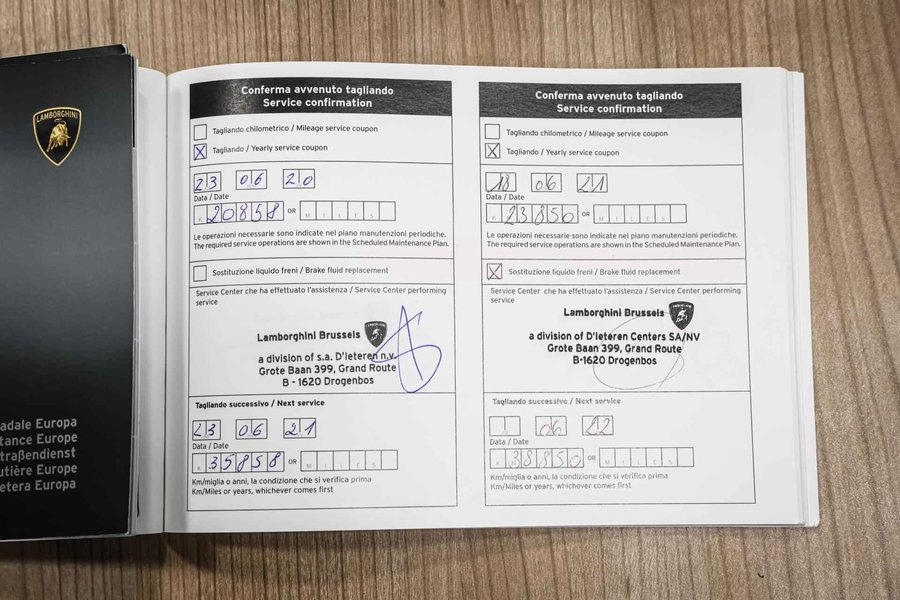 LAMBORGHINI
adale Europa
tance Europe
traßendienst
utière Europe
etera Europa
Conferma avvenuto tagliando
Service confirmation
Tagliando chilometrico / Mileage service coupon
X Tagliando / Yearly service coupon
23 06 20
Data / Date
K 20858 OR MILES
Le operazioni necessarie sono indicate nel piano manutenzioni periodiche.
The required service operations are shown in the Scheduled Maintenance Plan.
Sostituzione liquido freni / Brake fluid replacement
Service Center che ha effettuato l'assistenza / Service Center performing
service
Lamborghini Brussels
a division of s.a. D'Ieteren n.v.
Grote Baan 399, Grand Route
B - 1620 Drogenbos
Tagliando successivo / Next service
23 06 21
Data / Date
K 35858 OR MILES
Km/miglia o anni, la condizione che si verifica prima
Km/Miles or years, whichever comes first
Conferma avvenuto tagliando
Service confirmation
Tagliando chilometrico / Mileage service coupon
X Tagliando / Yearly service coupon
18 06 21
Data / Date
K 23850 OR MILES
Le operazioni necessarie sono indicate nel piano manutenzioni periodiche.
The required service operations are shown in the Scheduled Maintenance Plan.
X Sostituzione liquido freni / Brake fluid replacement
Service Center che ha effettuato l'assistenza / Service Center performing
service
Lamborghini Brussels
a division of D'Ieteren Centers SA/NV
Grote Baan 399, Grand Route
B-1620 Drogenbos
Tagliando successivo / Next service
06 22
Data / Date
K 38850 OR MILES
Km/miglia o anni, la condizione che si verifica prima
Km/Miles or years, whichever comes first